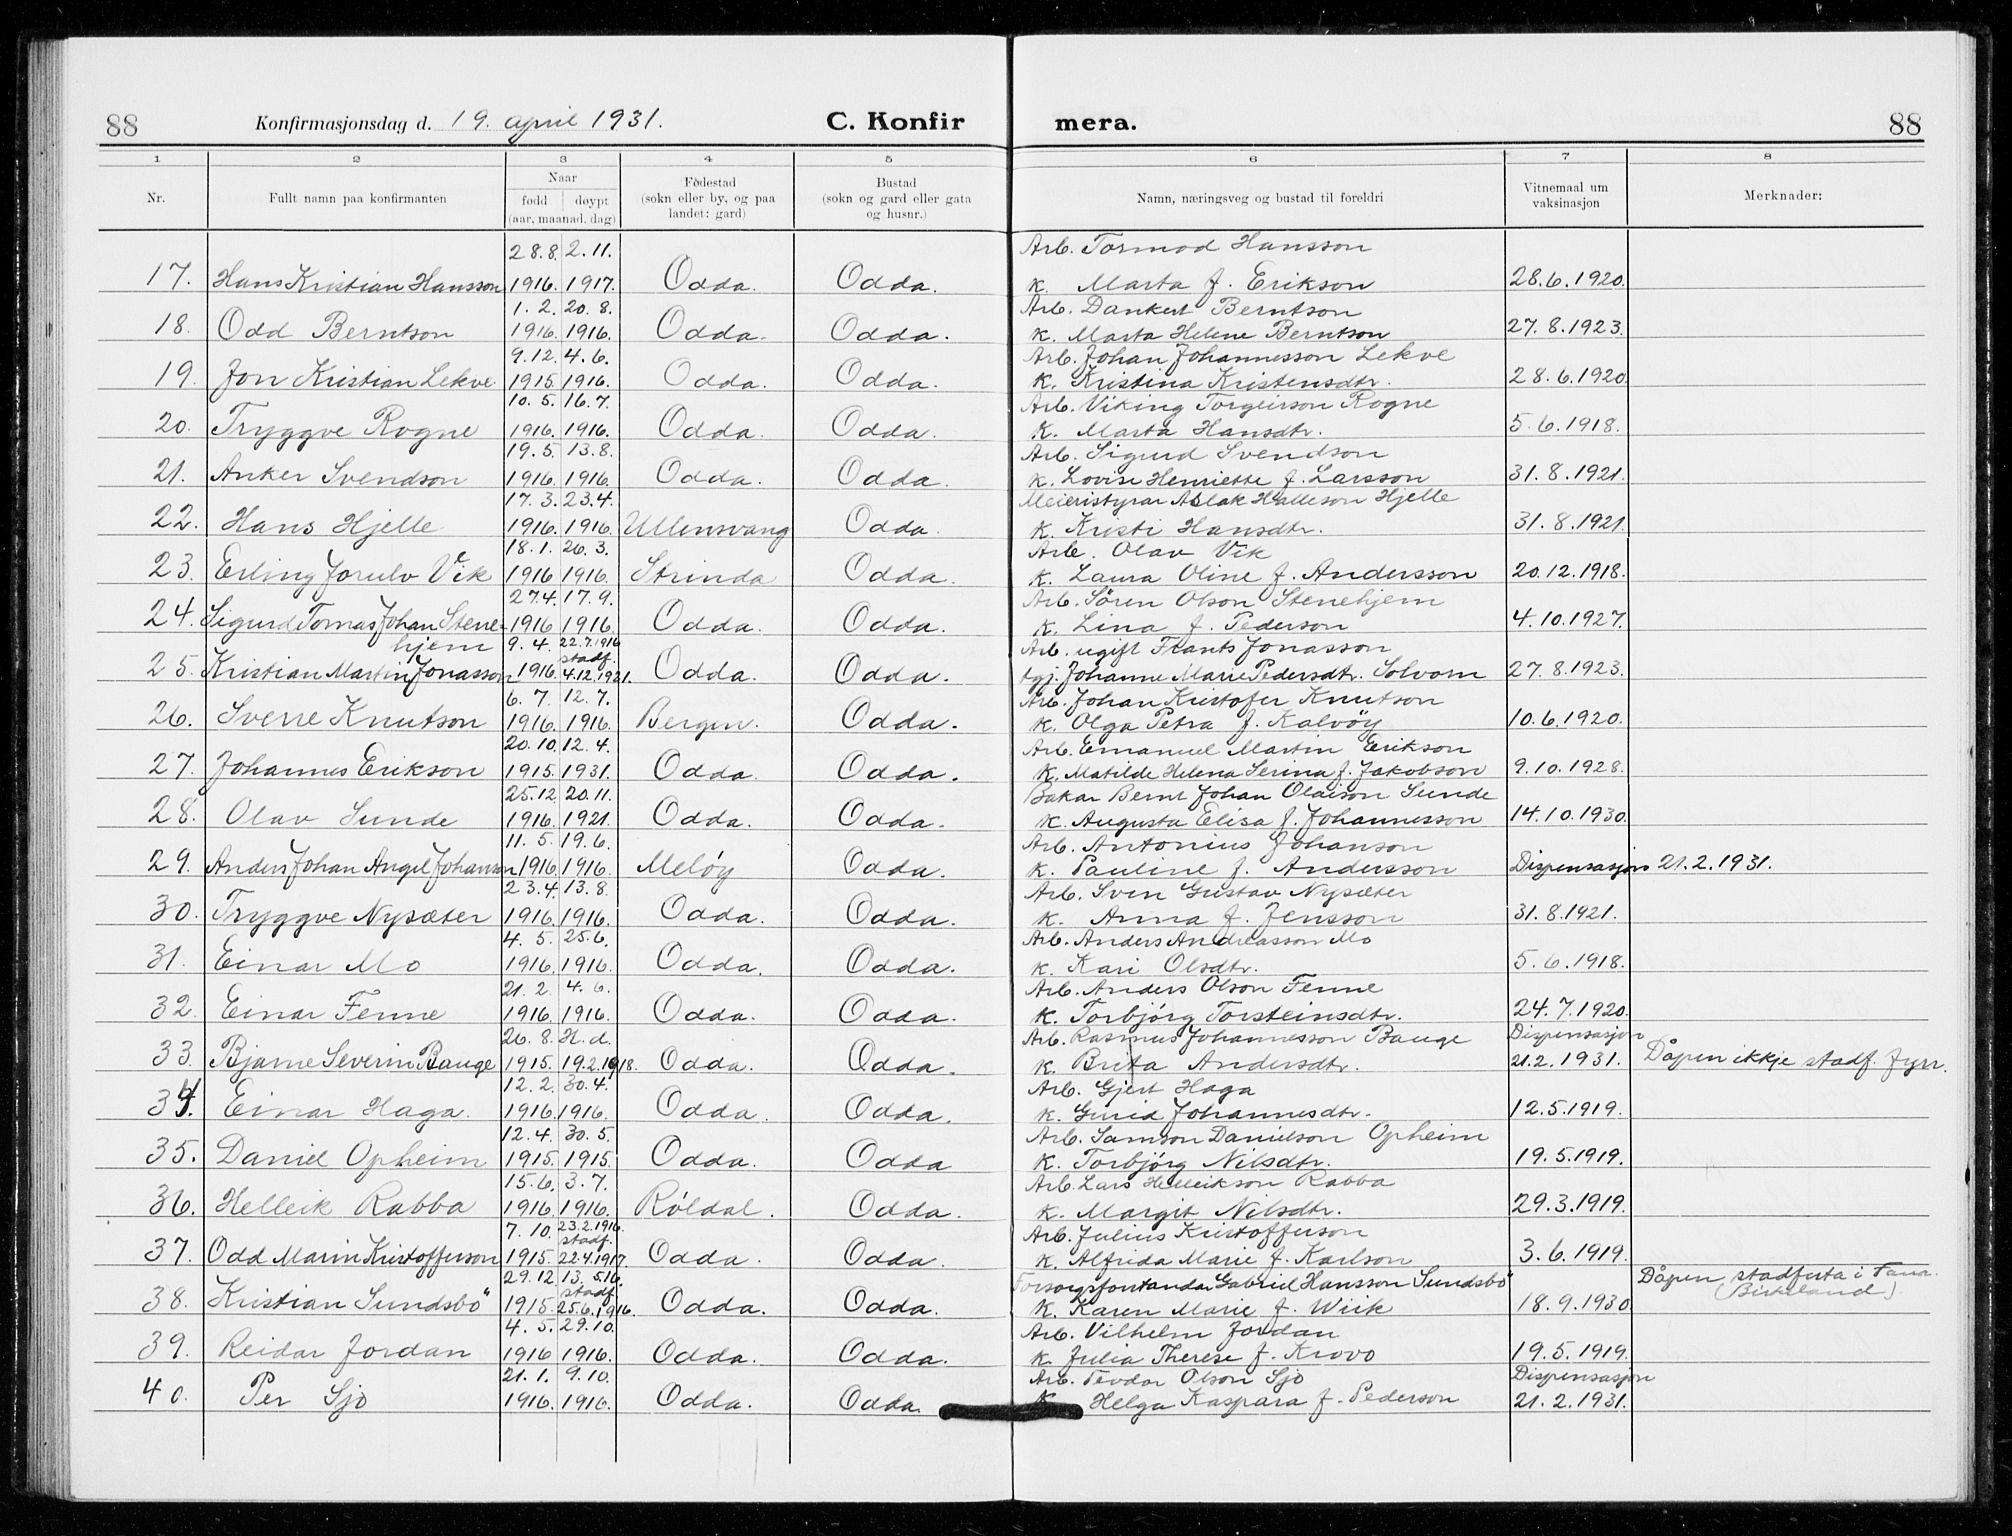 88 Konfirmasjonsdag d. 19. april 1931. C. Konfir mera. 88
1 2 3 4 5 6 7 8
Nr. Fullt namn paa konfirmanten Naar Fødestad Bustad Namn, næringsveg og bustad til foreldri Vitnemaal um Merknader:
født døypt (sokn eller by, og paa (sokn og gard eller gata vaksinasjon
(aar, maanad, dag) landet: gard) og husnr.)
28.8. 2.11. Arb. Tormod Hansson
17. Hans Kristian Hansson 1916. 1917. Odda. Odda. K. Marta f. Erikson 28.6.1920.
1. 2. 20. 8. Arb. Dankert Berntson
18. Odd Berntson 1916. 1916. Odda. Odda. K. Marta Helene Berntson 27.8.1923.
9.12. 4.6. Arb. Johan Johannesson Lekve
19. Jon Kristian Lekve 1915. 1916. Odda. Odda. K. Kristina Kristensdtr. 28.6.1920.
10. 5. 16.7. Arb. Viking Torgeirson Rogne
20. Tryggve Rogne 1916. 1916. Odda. Odda. K. Marta Hansdtr. 5.6.1918.
19.5. 13.8. Arb. Sigurd Svendson
21. Anker Svendson 1916. 1916. Odda. Odda. K. Lovise Henriette f. Larsson 31.8.1921.
17. 3. 23.4. Meieristyrar Aslak Halleson Hjelle
22. Hans Hjelle 1916. 1916. Ullensvang Odda. K. Kristi Hansdtr. 31.8.1921.
18.1. 26.3. Arb. Olav Vik
23. Erling Jorulv Vik 1916 1916. Strinda Odda. K. Laura Oline f. Andersson 20.12.1918.
27.4. 17.9. Arb. Sören Olson Stenehjem
24. Sigurd Tomas Johan Stene- 1916 1916. Odda. Odda. K. Lina f. Pederson 4.10.1927.
hjem 9. 4. 22.7.1916 Arb. ugift Frants Jonasson
stadf.
25. Kristian Martin Jonasson 1916. 4.12.1921. Odda. Odda. tgj. Johanne Marie Pedersdtr. Solvorn 27.8.1923.
6. 7. 12. 7. Arb. Johan Kristofer Knutson
26. Sverre Knutson 1916. 1916. Bergen. Odda. K. Olga Petra f. Kalvöy 10.6.1920.
20.10. 12. 4. Arb. Emanuel Martin Erikson
27. Johannes Erikson 1915. 1931. Odda. Odda. K. Matilde Helena Serina f. Jakobson 9.10.1928.
25.12. 20.11. Bakar Bernt Johan Olaison Sunde
28. Olav Sunde 1916. 1921. Odda. Odda. K. Augusta Elisa f. Johannesson 14.10.1930.
11. 5. 19.6. Arb. Antonius Johanson
29. Anders Johan Angel Johanson 1916. 1916. Meløy Odda. K. Pauline f. Andersson Dispensasjon 21.2.1931.
23.4. 13.8. Arb. Sven Gustav Nysæter
30. Tryggve Nysæter 1916. 1916. Odda. Odda. K. Anna f. Jensson 31.8.1921.
4. 5. 25.6. Arb. Anders Andreasson Mo
31. Einar Mo 1916. 1916. Odda. Odda. K. Kari Olsdtr. 5.6.1918.
21. 2. 4. 6. Arb. Anders Olson Fenne
32. Einar Fenne 1916. 1916. Odda. Odda. K. Torbjörg Torsteinsdtr. 24.7.1920.
26. 8. H.d. Arb. Rasmus Johannesson Bauge Dispensasjon
33. Bjarne Severin Bauge 1915. 19.2.1918. Odda. Odda. K. Brita Andersdtr. 21.2.1931. Dåpen ikkje stadf. fyrr.
12. 2. 30.4. Arb. Gjert Haga
34. Einar Haga. 1916. 1916. Odda. Odda. K. Gurid Johannesdtr. 12.5.1919.
12.4. 30.5. Arb. Samson Danielson Opheim
35. Daniel Opheim 1915. 1915. Odda. Odda K. Torbjörg Nilsdtr. 19.5.1919.
15.6. 3.7. Arb. Lars Helleikson Rabba
36. Helleik Rabba 1916. 1916. Röldal. Odda. K. Margit Nilsdtr. 29.3.1919.
7. 10. 23.2.1916. Arb. Julius Kristofferson
stadf.
37. Odd Marin Kristofferson 1915. 22.4.1917. Odda. Odda. K. Alfrida Marie f. Karlson 3.6.1919.
29.12. 13. 5.16. Forsorgsforstandar Gabriel Hansson Sundsbö Dåpen stadfesta i Fana.
stadf. (Birkeland).
38. Kristian Sundsbö 1915. 25.6.1916. Odda. Odda. K. Karen Marie f. Wiik 18.9.1930.
4. 5. 29.10. Arb. Vilhelm Jordan
39. Reidar Jordan 1916 1916. Odda. Odda. K. Julia Therese f. Krovo 19.5.1919.
21.1. 9.10. Arb. Teodor Olson Sjo Dispensasjon
40. Per Sjo 1916. 1916. Odda. Odda. K Helga Kaspara f. Pederson 21.2.1931.